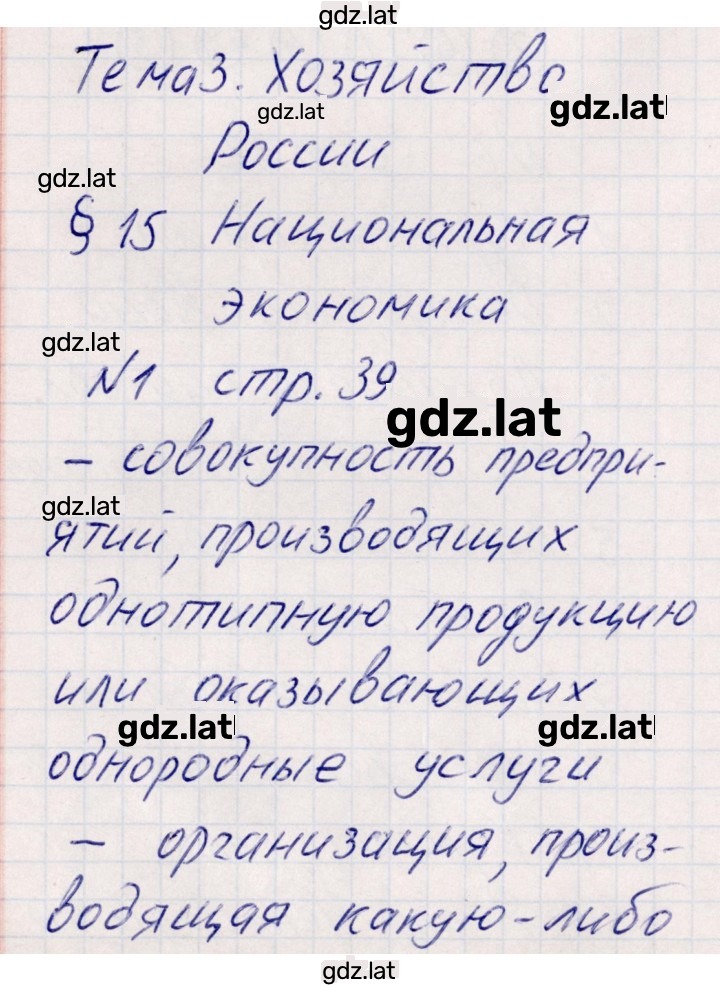 gdz.lat
Тема 3. Хозяйство
gdz.lat
gdz.lat
России
gdz.lat
§ 15 Национальная
экономика
gdz.lat
№1 стр. 39
gdz.lat
– совокупность предпри-
gdz.lat
ятий, производящих
однотипную продукцию
или оказывающих
gdz.lat
gdz.lat
однородные услуги
– организация, произ-
водящая какую-либо
gdz.lat